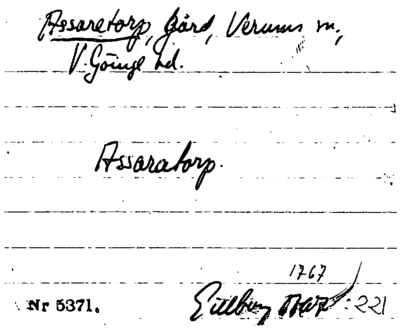 Assaretorp, Gård, Verums sn,
V. Göinge hd.
Assaratorp.
1767
Nr 5371. Gillberg 221